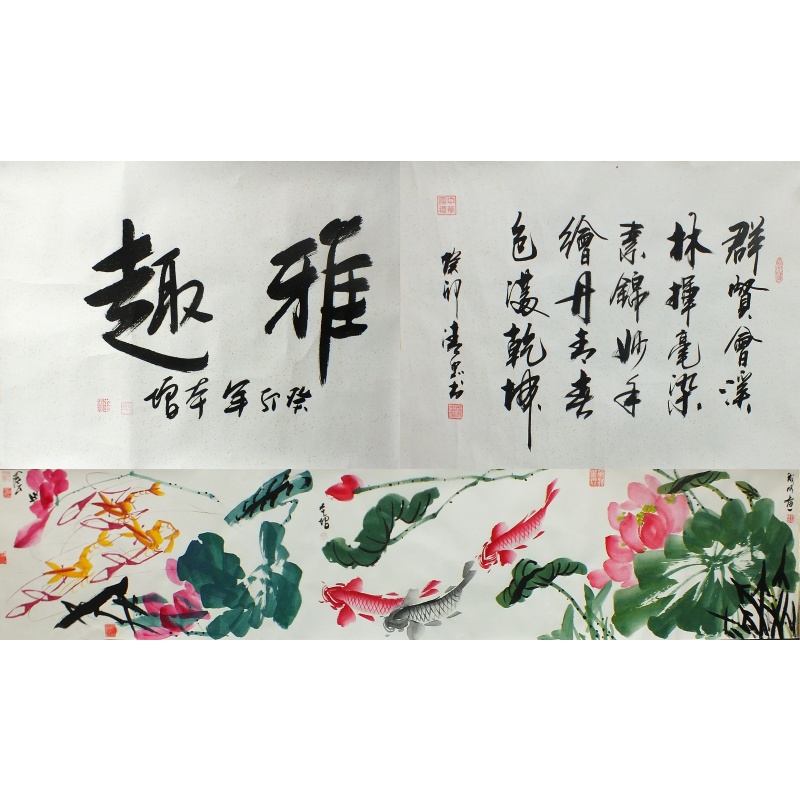 雅趣
癸卯年本增
群賢會溪
林揮毫染
素錦妙手
繪丹青春
色滿乾坤
癸卯清泉書
本增